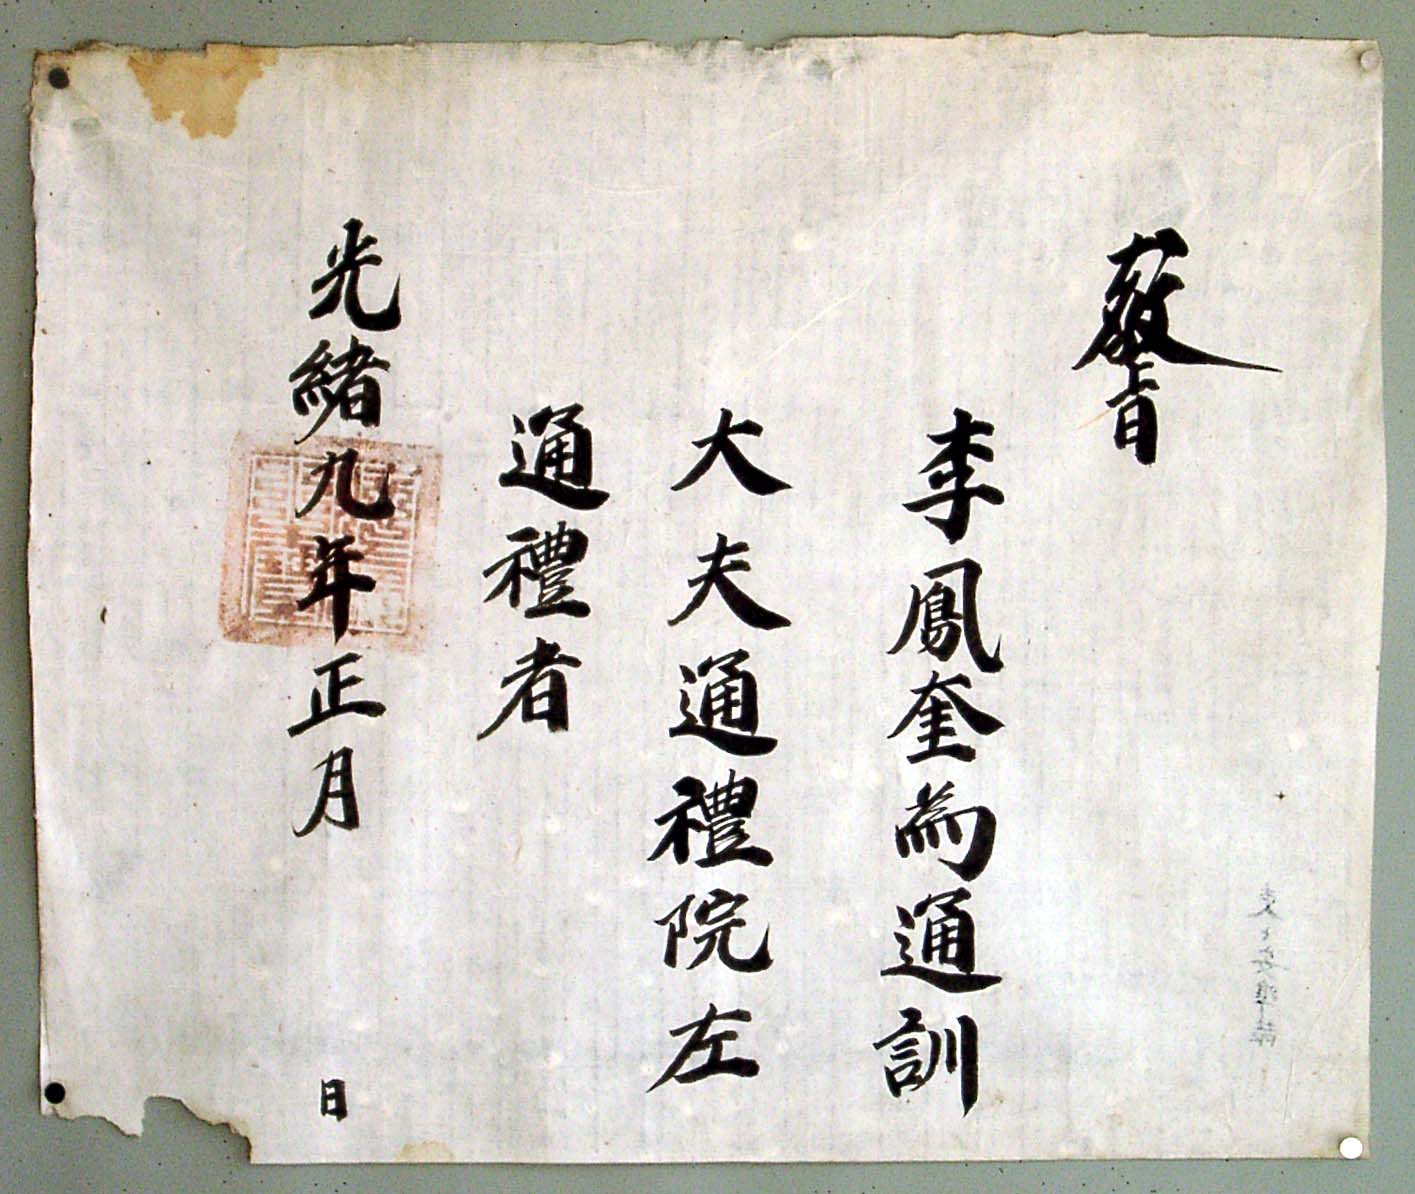 敎旨
李鳳奎為通訓
大夫通禮院左
通禮者
光緒九年正月 日